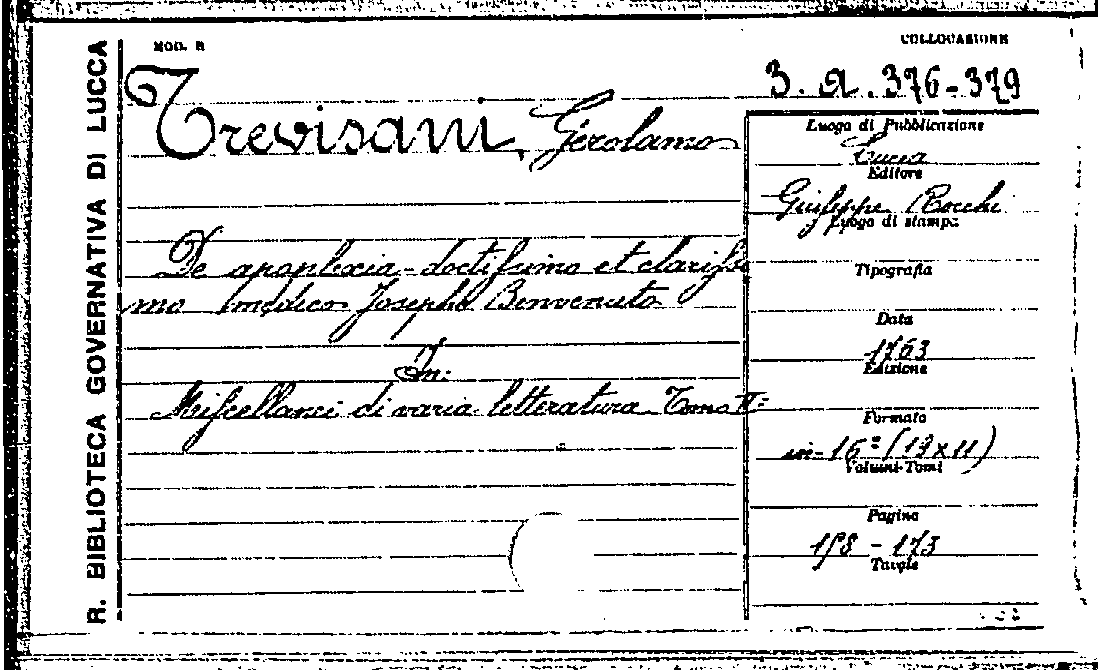 R. BIBLIOTECA GOVERNATIVA DI LUCCA
MOD. B
COLLOCAZIONE
3. a. 376-379
Trevisani, Girolamo
Luogo di Pubblicazione
Lucca
Editore
Giuseppe Rocchi
Luogo di stampa
Tipografia
Data
1763
Edizione
Formato
in-16° (17x11)
Volumi-Tomi
Pagine
158 - 173
Tavole
De apoplexia - doctissimo et clarissi
mo medico Josepho Benvenuto
In:
Miscellanei di varia letteratura Tomo II=